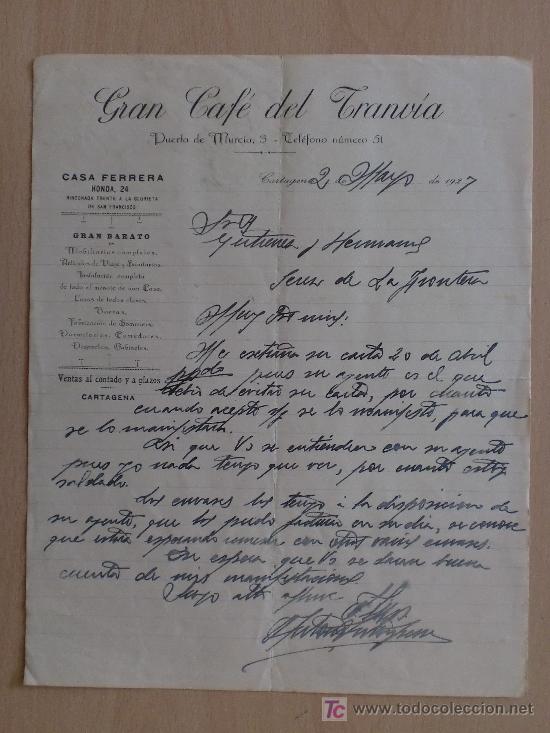 Gran Café del Tranvía
Puerta de Murcia, 3 - Teléfono número 51
Cartagena 2 de Mayo de 1927
CASA FERRERA
HONDA, 24
RINCONADA FRENTE A LA GLORIETA
DE SAN FRANCISCO
GRAN BARATO
DE
Mobiliarios completos.
Artículos de Viaje y Sanitarios.
Instalación completa
de todo el menaje de una Casa.
Camas de todas clases.
Fabricación de Somiers.
Dormitorios, Comedores,
Despachos, Gabinetes.
Ventas al contado y a plazos
CARTAGENA
Gutierrez y Hermanos
Jerez de La Frontera
Muy Sres mios:
Me extraña su carta 20 de Abril
pues su agente es el que
debia de evitar su carta, por cuanto
cuando acepté se lo manifesté, para que
se lo manifestara.
Asi que Vs se entienden con su agente
pues yo nada tengo que ver, por cuanto estoy
saldado.
Los envases los tengo á la disposicion de
su agente, que los pudo facturar en su dia, se conoce
que estará esperando remesar con otros varios envases.
En espera que Vs se daran buena
cuenta de mis manifestaciones
Suyo atto
TC www.todocoleccion.net